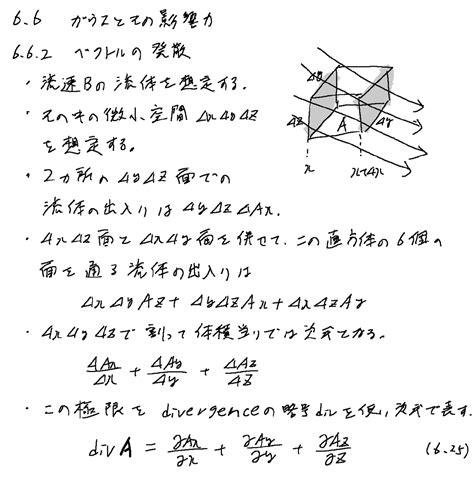 6.6 ガウスとその影響力
6.6.2 ベクトルの発散
・流速Bの流体を想定する.
・その中の微小空間 ΔxΔyΔz
を想定する.
Δy
Δz
A
Δy
x
x+Δx
・2カ所の ΔyΔz 面での
流体の出入りは ΔyΔzΔAx.
・ΔxΔz面とΔxΔy面を併せて、この直方体の6個の
面を通る流体の出入りは
ΔxΔyAz + ΔyΔzAx + ΔxΔzAy
・ΔxΔyΔzで割って体積当りでは次式となる.
ΔAx/Δx + ΔAy/Δy + ΔAz/Δz
・この極限をdivergenceの略号divを使い次式で表す.
div A = ∂Ax/∂x + ∂Ay/∂y + ∂Az/∂z (6.25)